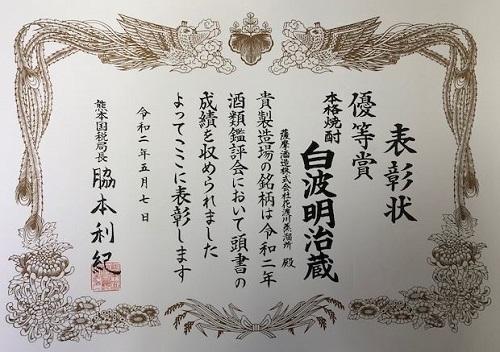 表彰状
優等賞
本格焼酎 白波明治蔵
薩摩酒造株式会社花渡川蒸溜所 殿
貴製造場の銘柄は令和二年
酒類鑑評会において頭書の
成績を収められました
よってここに表彰します
令和二年五月七日
熊本国税局長 脇本利紀